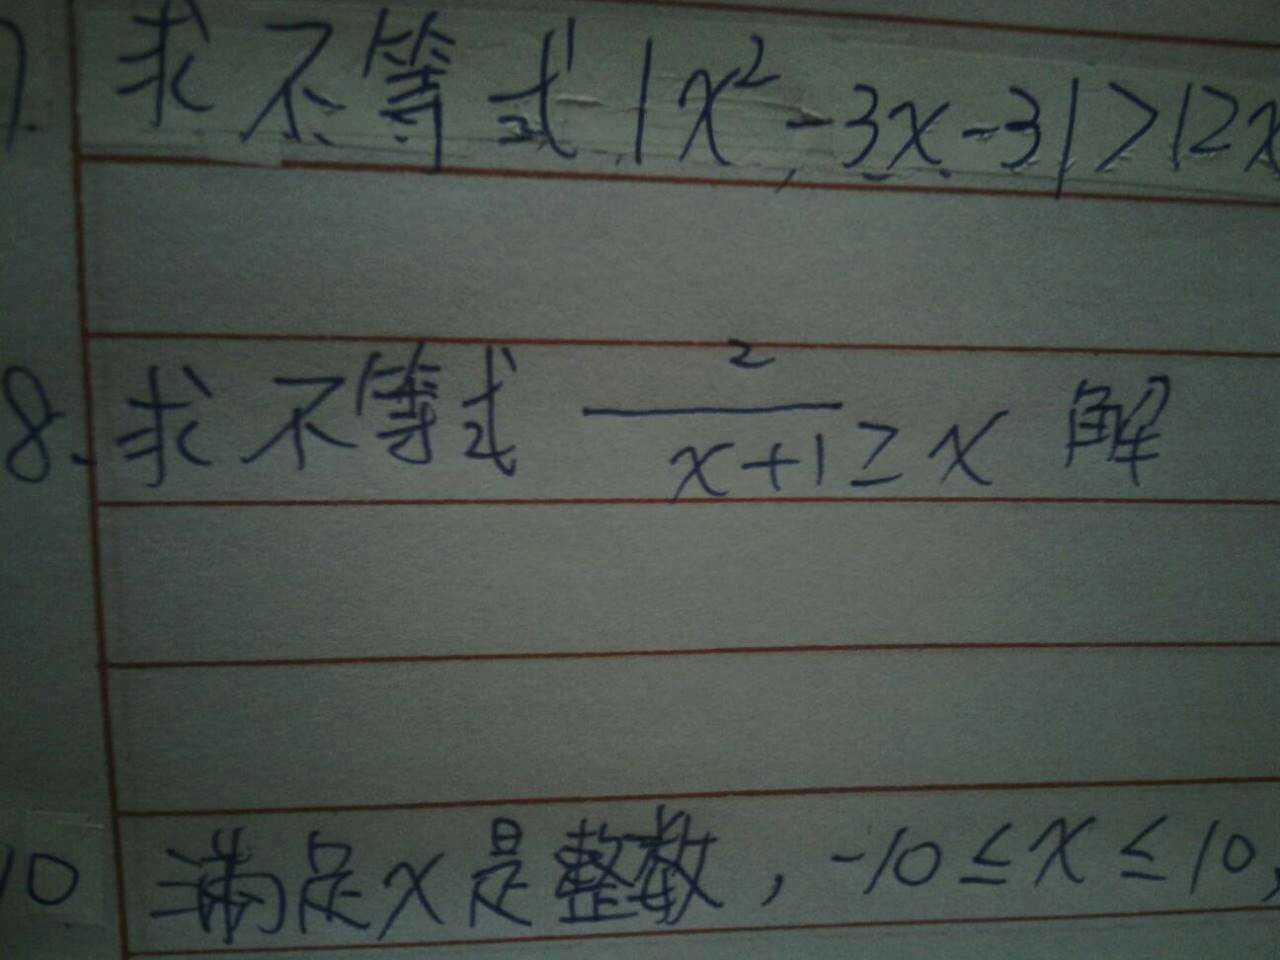 7. 求不等式 |x²-3x-3|>|2x
8. 求不等式 2/(x+1) ≥ x 解
10 满足x是整数，-10≤x≤10，